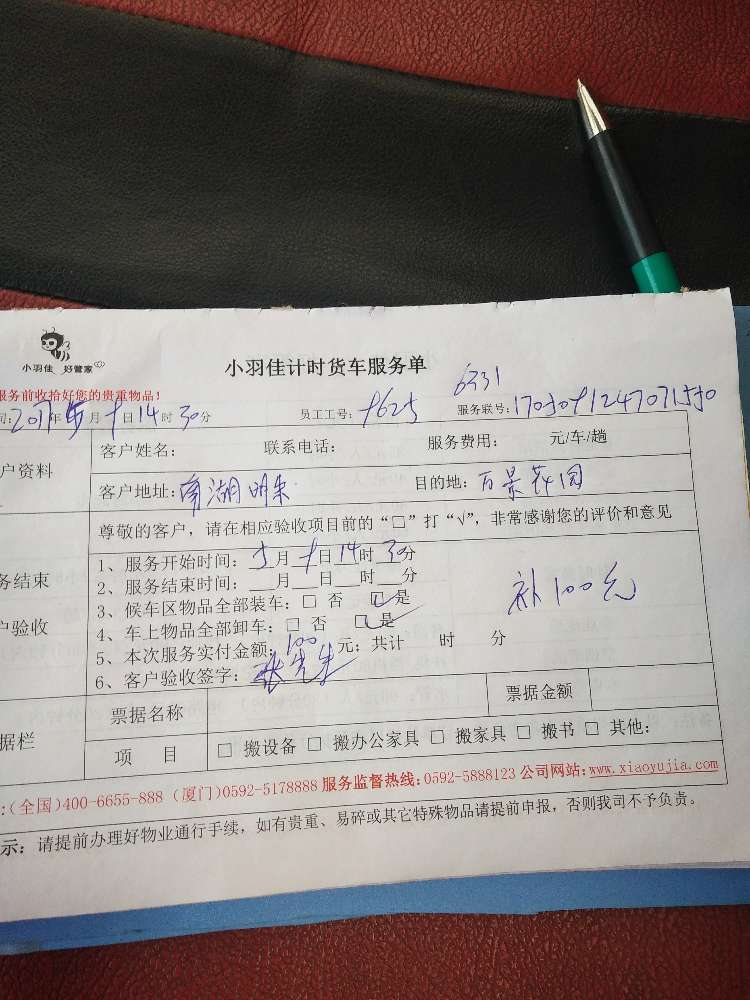 小羽佳 好管家
小羽佳计时货车服务单
服务前收拾好您的贵重物品!
6331
2017年5月 日14时30分 员工工号: 服务联号:
户资料
客户姓名: 联系电话: 服务费用: 元/车/趟
客户地址:南湖明珠 目的地:万景花园
尊敬的客户，请在相应验收项目前的“□”打“√”，非常感谢您的评价和意见
务结束
户验收
1、服务开始时间:5月 日14时30分
2、服务结束时间:___月___日___时___分
3、候车区物品全部装车:□ 否 □是
4、车上物品全部卸车:□ 否 □是
补100元
5、本次服务实付金额:100元;共计 时 分
6、客户验收签字:张先生
据栏
票据名称 票据金额
项 目 □ 搬设备 □ 搬办公家具 □ 搬家具 □ 搬书 □ 其他:
:(全国)400-6655-888 (厦门)0592-5178888 服务监督热线:0592-5888123 公司网站:www.xiaoyujia.com
示: 请提前办理好物业通行手续，如有贵重、易碎或其它特殊物品请提前申报，否则我司不予负责。